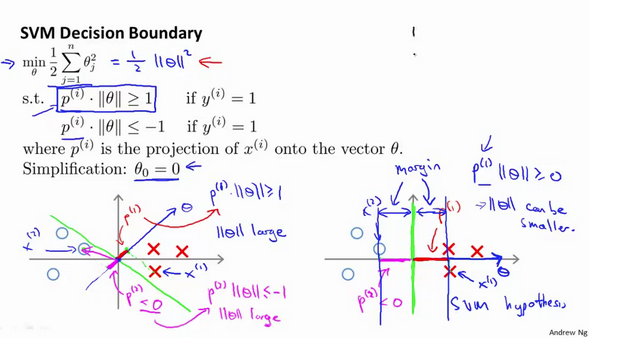 SVM Decision Boundary
min θ 1/2 ∑ j=1 n θ_j^2 = 1/2 ||θ||^2
s.t. p^(i) · ||θ|| ≥ 1 if y^(i) = 1
p^(i) · ||θ|| ≤ −1 if y^(i) = 1
where p^(i) is the projection of x^(i) onto the vector θ.
Simplification: θ_0 = 0
p^(1) · ||θ|| ≥ 1
||θ|| large
θ
p^(1)
x^(2)
x^(1)
p^(2) < 0
p^(2) ||θ|| ≤ −1
||θ|| large
margin
x^(2)
p^(1)
p^(1) ||θ|| ≥ 0
→ ||θ|| can be
smaller.
θ
x^(1)
p^(2) < 0
SVM hypothesis
Andrew Ng